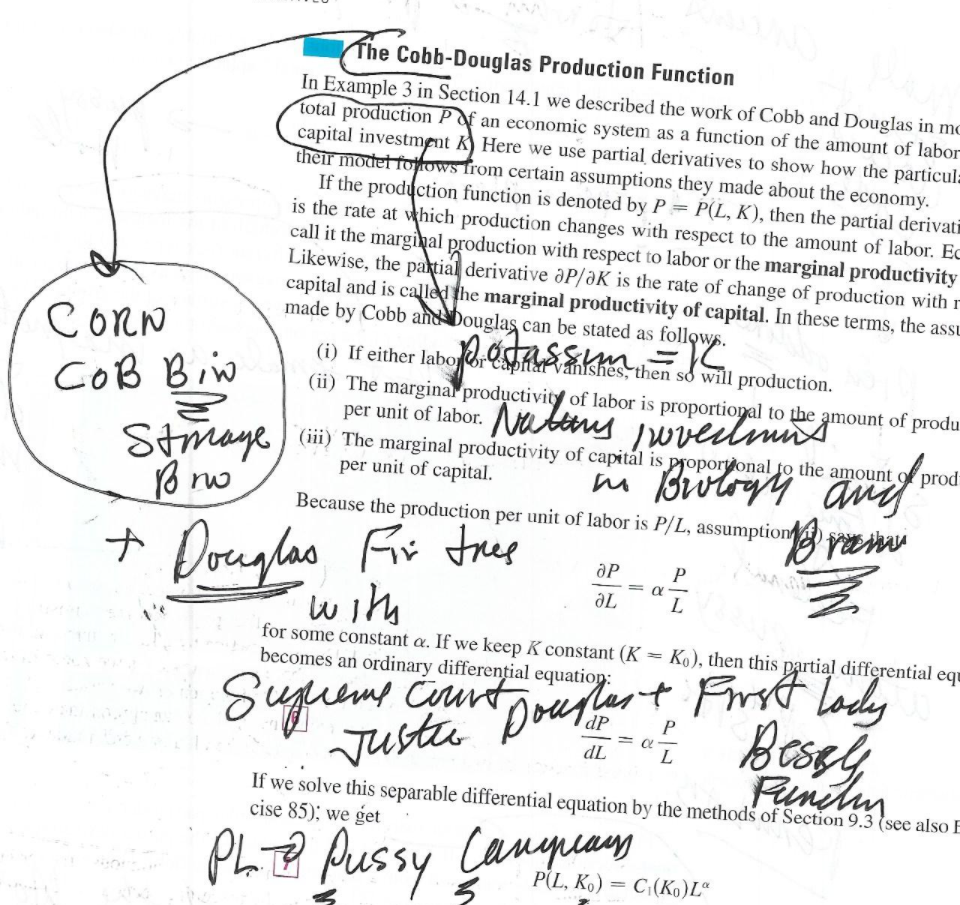 The Cobb-Douglas Production Function
In Example 3 in Section 14.1 we described the work of Cobb and Douglas in mo
total production P of an economic system as a function of the amount of labor
capital investment K. Here we use partial derivatives to show how the particula
their model follows from certain assumptions they made about the economy.
If the production function is denoted by P = P(L, K), then the partial derivati
is the rate at which production changes with respect to the amount of labor. Ec
call it the marginal production with respect to labor or the marginal productivity
Likewise, the partial derivative ∂P/∂K is the rate of change of production with r
capital and is called the marginal productivity of capital. In these terms, the assu
made by Cobb and Douglas can be stated as follows.
CORN
COB Bin
Storage
Bin
potassium = K
(i) If either labor or capital vanishes, then so will production.
(ii) The marginal productivity of labor is proportional to the amount of produ
per unit of labor.
Natures investments
(iii) The marginal productivity of capital is proportional to the amount of prod
per unit of capital.
in Biology and
Brain
Because the production per unit of labor is P/L, assumption (ii) says that
+ Douglas Fir trees
∂P/∂L = α P/L
with
for some constant α. If we keep K constant (K = K₀), then this partial differential equ
becomes an ordinary differential equation:
Supreme Court Douglas + First lady
Justice
6
dP/dL = α P/L
Function
If we solve this separable differential equation by the methods of Section 9.3 (see also E
cise 85); we get
PL → Pussy
7
P(L, K₀) = C₁(K₀)L^α